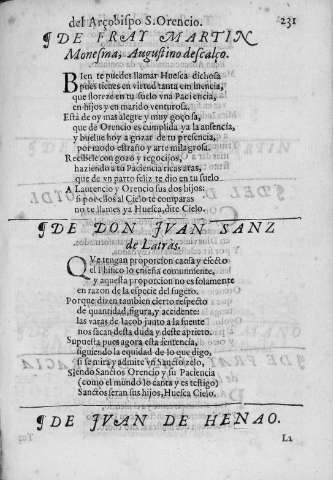 del Arçobispo S. Orencio. 231
¶ DE FRAY MARTIN
Monesma, Augustino descalço.
BIen te puedes llamar Huesca dichosa
pues tienes en virtud tanta eminencia,
que floreze en tu suelo vna Paciencia,
en hijos y en marido venturosa.
Està de oy mas alegre y muy goçosa,
que de Orencio es cumplida ya la ausencia,
y buelue hoy a gozar de tu presencia,
por modo estraño y arte milagrosa.
Recibele con gozo y regocijos,
haziendo a tu Paciencia ricas aras,
que de vn parto feliz te dio en tu suelo
A Laurencio y Orencio sus dos hijos:
si por ellos al Cielo te comparas
no te llames ya Huesca, dite Cielo.
¶ DE DON IVAN SANZ
de Latràs.
QVe tengan proporcion causa y efecto
el Phisico lo enseña comunmente,
y aquesta proporcion no es solamente
en razon de la especie del sugeto.
Porque dizen tambien cierto respecto
de quantidad, figura, y accidente:
las varas de Iacob junto a la fuente
nos sacan desta duda y deste aprieto.
Supuesta pues aquesta sentencia,
siguiendo la equidad de lo que digo,
si se mira y admite vn Sancto zelo,
Siendo Sanctos Orencio y su Paciencia
(como el mundo lo canta y es testigo)
Sanctos seran sus hijos, Huesca Cielo.
¶ DE IVAN DE HENAO.